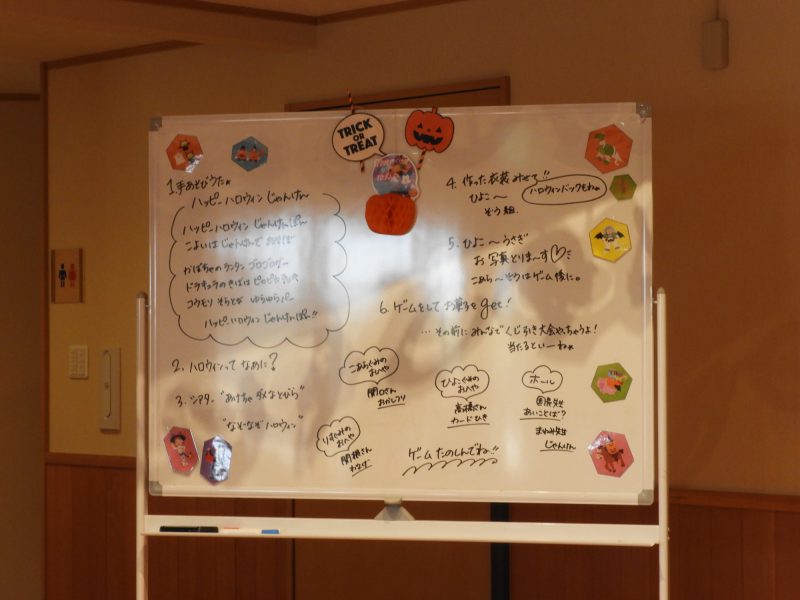 TRICK
OR
TREAT
1.手あそびうた
ハッピーハロウィン じゃんけん
ハッピーハロウィン じゃんけんぽん
こよいは じゃんけんで おおさわぎ
かぼちゃの ランタン ゴロゴログー
ドラキュラの きばは
コウモリ そらとぶ ゆらゆらパー
ハッピーハロウィン じゃんけんぽん!!
2. ハロウィンって なあに?
3. シアター "あけちゃダメなとびら"
"なぞなぞ ハロウィン"
4. 作った衣装みせて!!
ひよこ〜
ぞう組.
ハロウィンバックもね
5. ひよこ〜うさぎ
お写真とりまーす♡
こあら〜ぞうはゲーム後に。
6. ゲームをして お菓子を get!
…その前に みんなで くじ引き大会やっちゃうよ!
当たるといーね
こあらぐみの
おへや
関口さん
おかしつり
ひよこぐみの
おへや
高橋さん
カードひき
ホール
先生
あいことば?
まゆみ先生
じゃんけん
りすぐみの
おへや
関根さん
わなげ
ゲーム たのしんでね!!